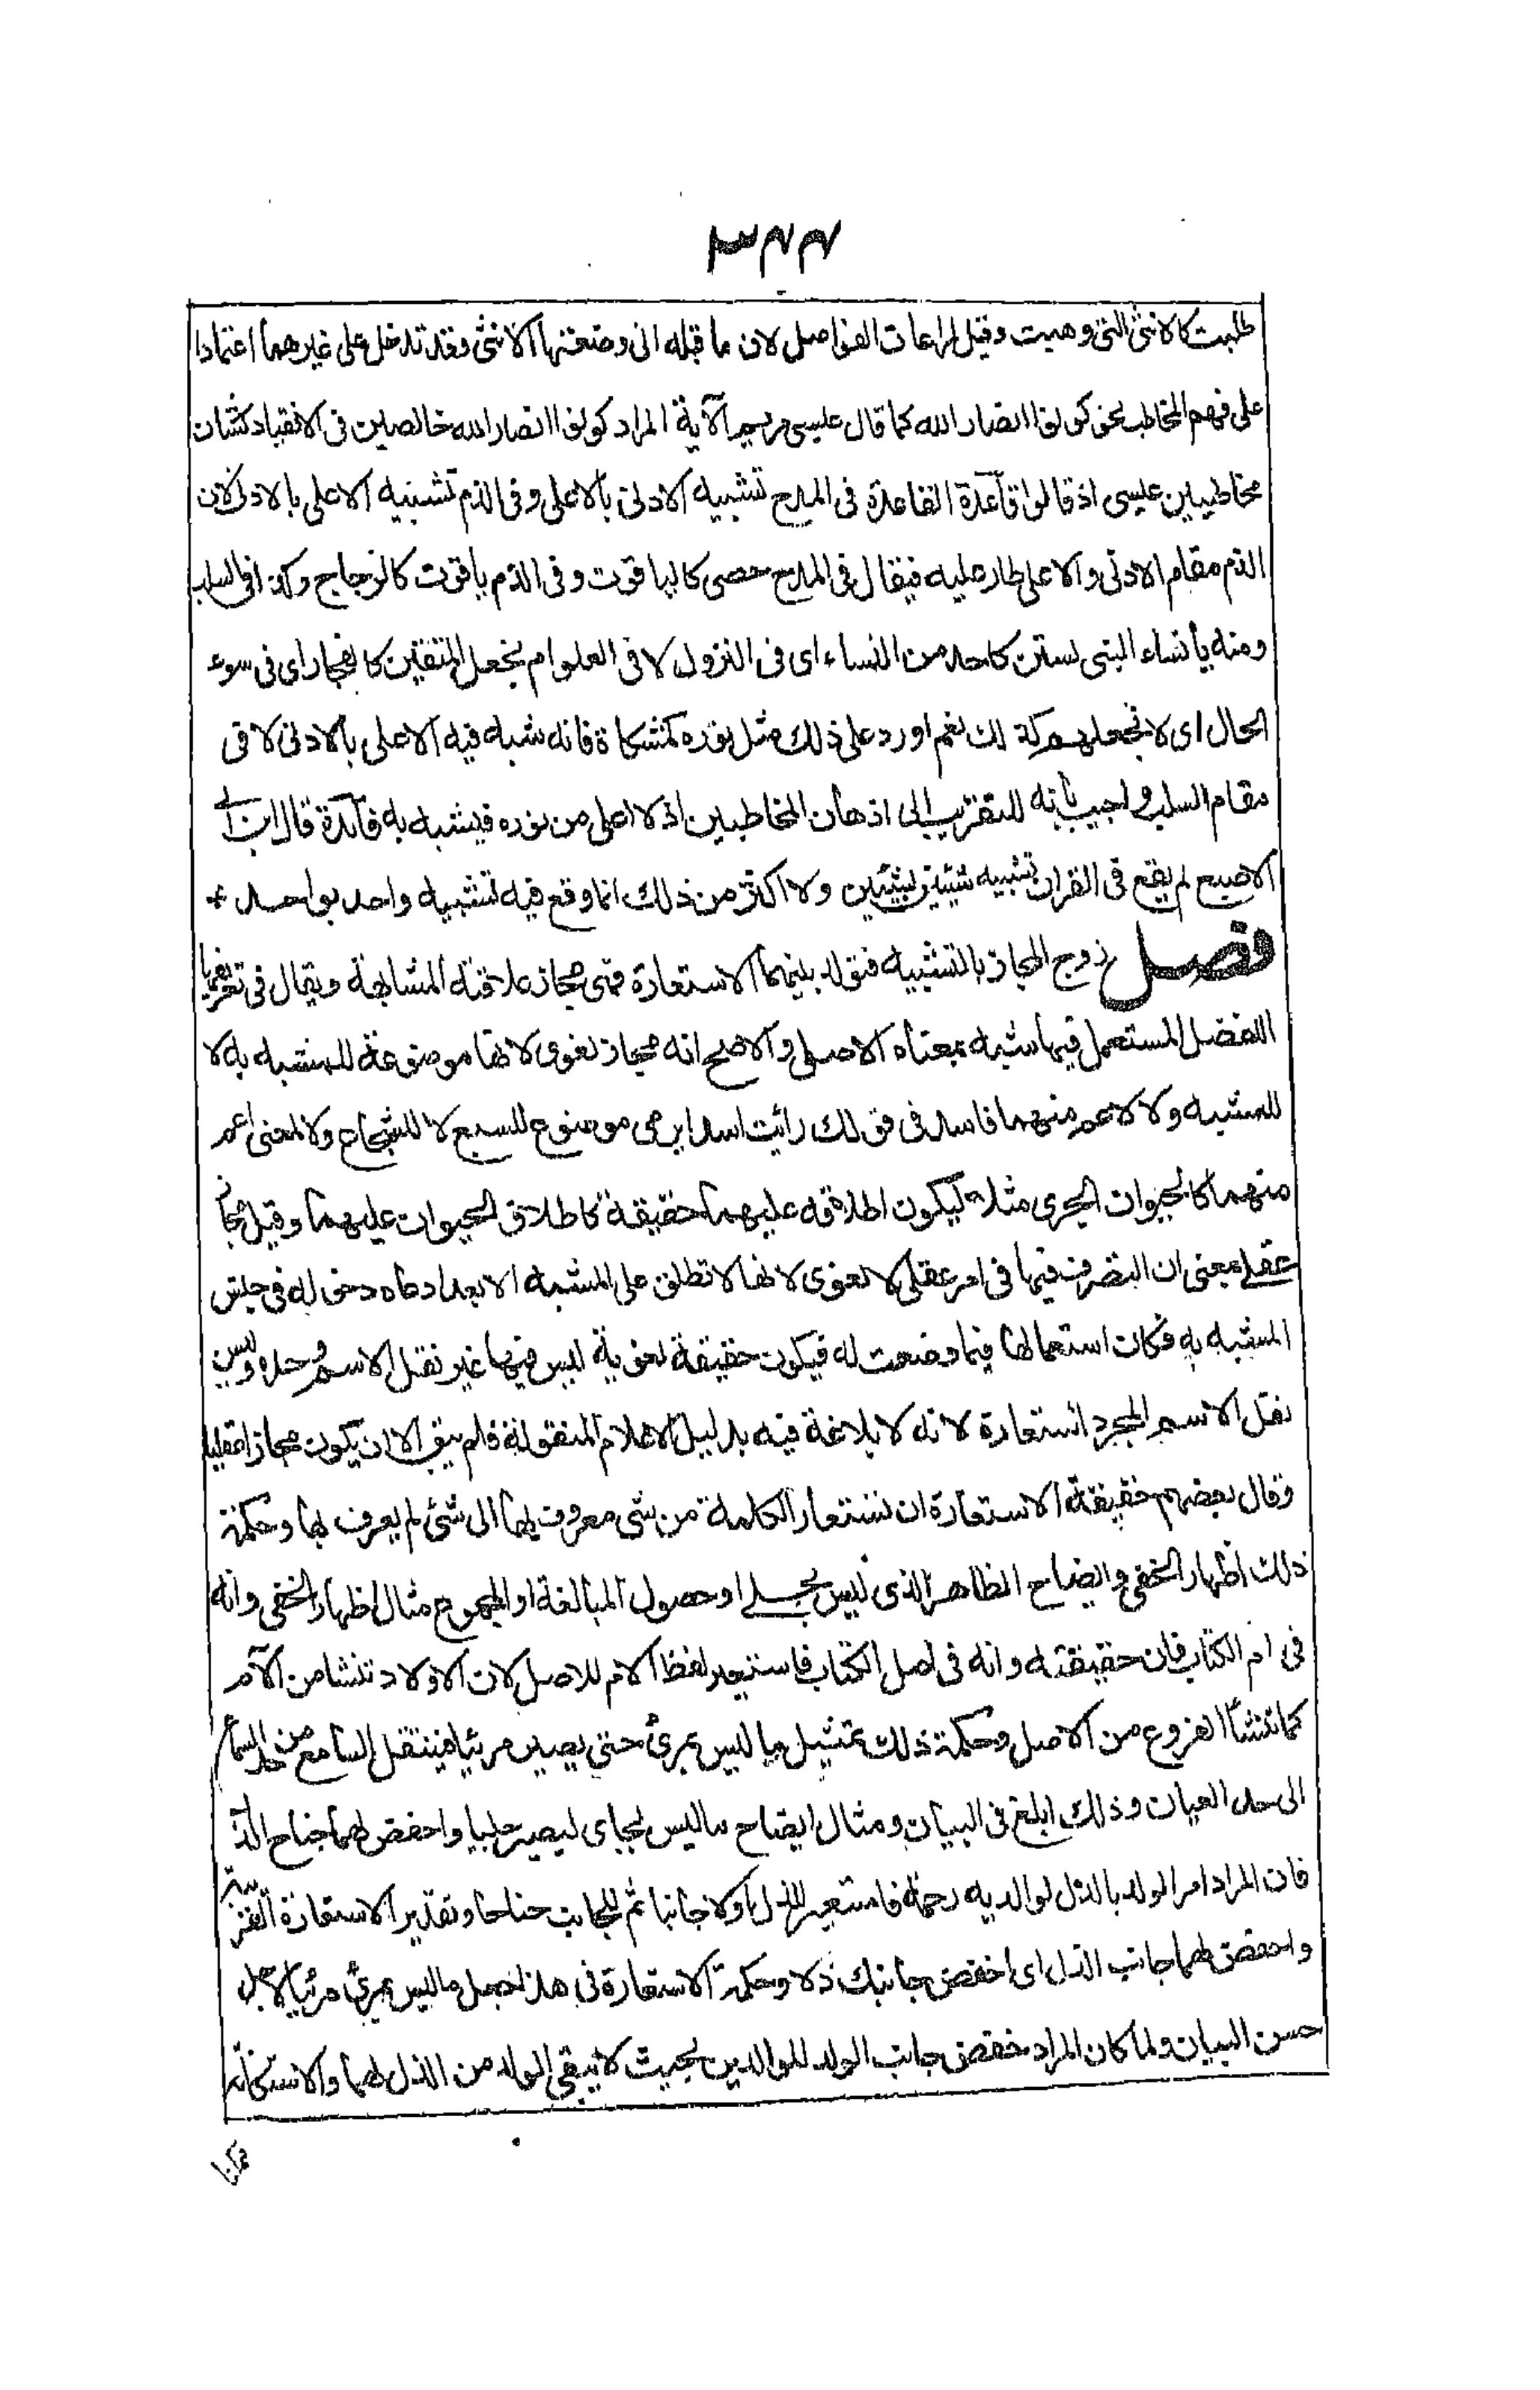 ٣٤٤
طلبت كالانثى التى وهبت وقيل لمراعات الفواصل لان ما قبله انى وضعتها الانثى وقد تدخل على غيرهما اعتمادا
على فهم المخاطب نحو كونوا انصار الله كما قال عيسى مريم الآية المراد كونوا انصار الله خالصين فى الانقياد كشان
مخاطبين عيسى اذ قالوا قاعدة القاعدة فى المدح تشبيه الادنى بالاعلى وفى الذم تشبيه الاعلى بالادنى لان
الذم مقام الادنى والاعلى طار عليه فيقال فى المدح حصى كالياقوت وفى الذم ياقوت كالزجاج وكذا فى السلب
ومنه يا نساء النبى لستن كاحد من النساء اى فى النزول لا فى العلو ام نجعل المتقين كالفجار اى فى سوء
الحال اى لا نجعلهم كذلك نعم اورد على ذلك مثل نوره كمشكاة فانه شبه فيه الاعلى بالادنى لا فى
مقام السلب واجيب بانه للتقريب الى اذهان المخاطبين اذ لا اعلى من نوره فيشبه به فآئدة قال ابن ابى
الاصبع لم يقع فى القران تشبيه شيئين بشيئين ولا اكثر من ذلك انما وقع فيه تشبيه واحد بواحد +
فصل زوج المجاز بالتشبيه فتولد بينهما الاستعارة فهى مجاز علاقته المشابهة ويقال فى تعريفها
اللفظ المستعمل فيما شبه بمعناه الاصلى والاصح انه مجاز لغوى لانها موضوعة للمشبه به لا
للمشبه ولا لاعم منهما فاسد فى قولك رائيت اسدا يرمى موضوع للسبع لا للشجاع ولا لمعنى اعم
منهما كالحيوان الجرى مثلا ليكون اطلاقه عليهما حقيقة كاطلاق الحيوان عليهما وقيل مجاز
عقلى بمعنى ان التصرف فيها فى امر عقلى لا لغوى لانها لا تطلق على المشبه الا بعد ادعاه دخوله فى جنس
المشبه به فكان استعمالها فيما وضعت له فيكون حقيقة لغوية ليس فيها غير نقل الاسم وحده وليس
نقل الاسم المجرد استعارة لانه لا بلاغة فيه بدليل الاعلام المنقولة فلم يبق الا ان يكون مجازا عقليا
وقال بعضهم حقيقة الاستعارة ان تستعار الكلمة من شى معروف بها الى شئ لم يعرف بها وحكمة
ذلك اظهار الخفى وايضاح الظاهر الذى ليس بجلى او حصول المبالغة او المجموع مثال اظهار الخفى وانه
فى ام الكتاب فان حقيقته وانه فى اصل الكتاب فاستعير لفظ الام للاصل لان الاولاد تنشا من الام
كما تنشأ الفروع من الاصل وحكمة ذلك تمثيل ما ليس بمرئ حتى يصير مرئيا فينتقل السامع من حد السماع
الى حد العيان وذلك ابلغ فى البيان ومثال ايضاح ما ليس بجلى ليصير جليا واخفض لهما جناح الذل
فان المراد امر الولد بالذل لوالديه رحمة فاستعير للذل اولا جانبا ثم للجانب جناحا وتقدير الاستعارة القريبة
واخفض لهما جانب الذل اى اخفض جانبك ذلا وحكمة الاستعارة فى هذا جعل ما ليس بمرئ مرئيا لاجل
حسن البيان ولما كان المراد خفض جانب الولد للوالدين بحيث لا يبقى الولد من الذل لهما والاستكانة